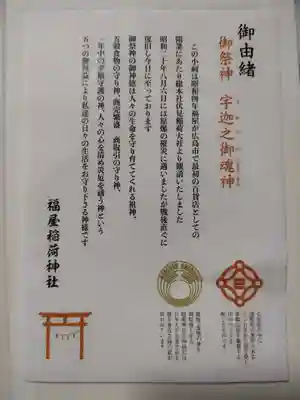 御由緒
御祭神 宇迦之御魂神
この小祠は昭和四年福屋が広島市で最初の百貨店としての
開業にあたり総本社伏見稲荷大社より勧請いたしました
昭和二十年八月六日には原爆の被災に遭いましたが戦後直ぐに
復旧し今日に至っております
御祭神の御神徳は人々の生命を守り育ててくれる祖神、
五穀食物の守り神、商売繁盛 商取引の守り神、
一年中の夕顔守護の神、人々の心を清め災厄を祓う神という
五つの御利益により私達の日々の生活をお守り下さる神様です
福屋稲荷神社